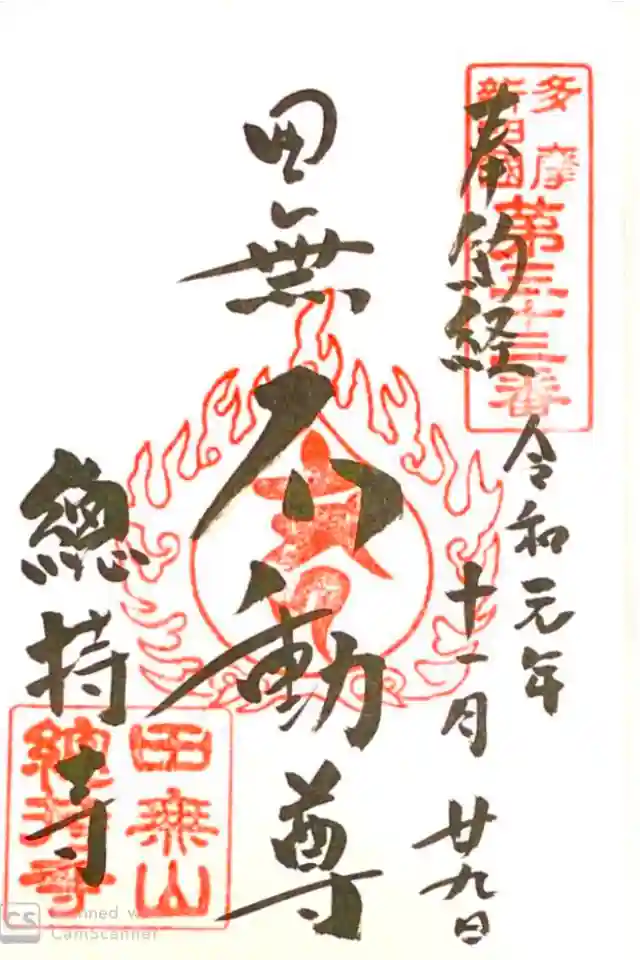 多摩
新四國
第三十三番
奉納経
令和元年
十一月廿九日
田無
不動尊
總持寺
田無山
總持寺
CS
Scanned w
CamScanner